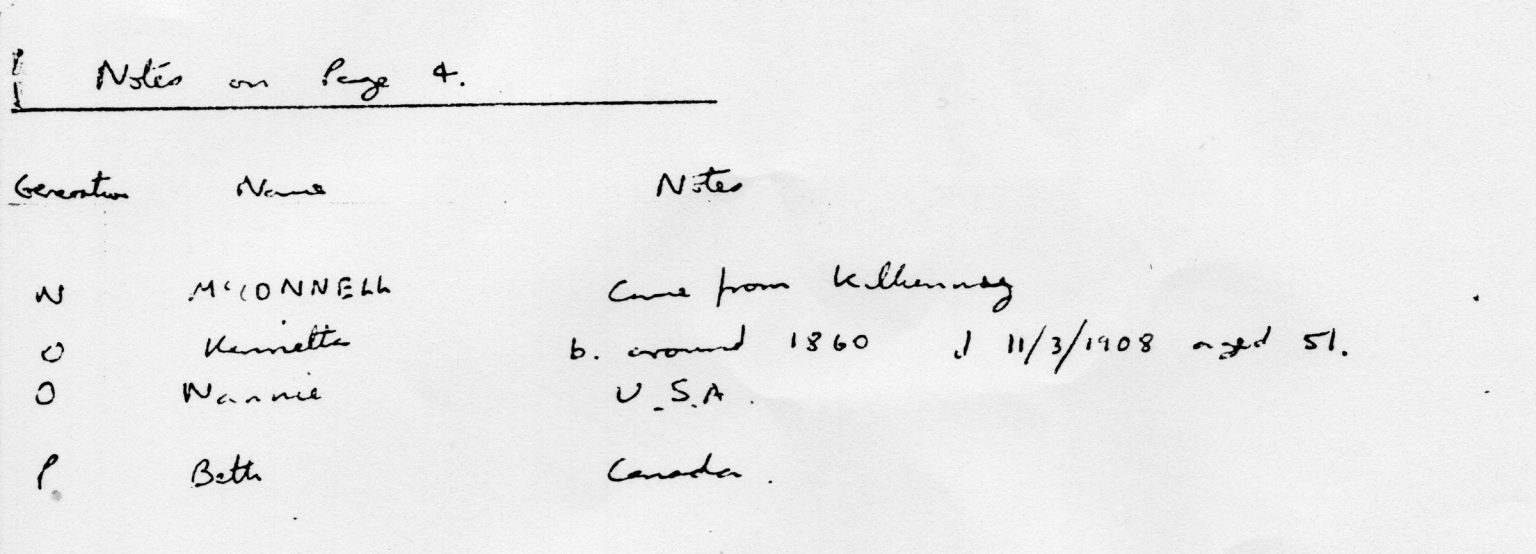 Notes on Page 4.
Generation Name Notes
N McCONNELL Came from Kilkenny
O b. around 1860 d 11/3/1908 aged 51.
O Nannie U.S.A.
P Beth Canada.